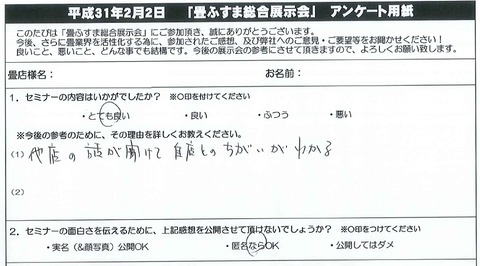 平成31年2月2日　「畳ふすま総合展示会」　アンケート用紙
このたびは「畳ふすま総合展示会」にご参加頂き、誠にありがとうございます。
今後、さらに畳業界を活性化する為に、参加されたご感想、及び弊社へのご意見・ご要望等をお聞かせください！
良いこと、悪いこと、どんな事でも結構です。今後の展示会の参考にさせて頂きますので、よろしくお願い致します。
畳店様名：　お名前：
1．セミナーの内容はいかがでしたか？　※○印を付けてください
・とても良い　・良い　・ふつう　・悪い
※今後の参考のために、その理由を詳しくお教えください。
(1) 他店の話が聞けて自店とのちがいがわかる
(2)
2．セミナーの面白さを伝えるために、上記感想を公開させて頂けないでしょうか？　※○印をつけてください
・実名（&顔写真）公開OK　・匿名ならOK　・公開してはダメ